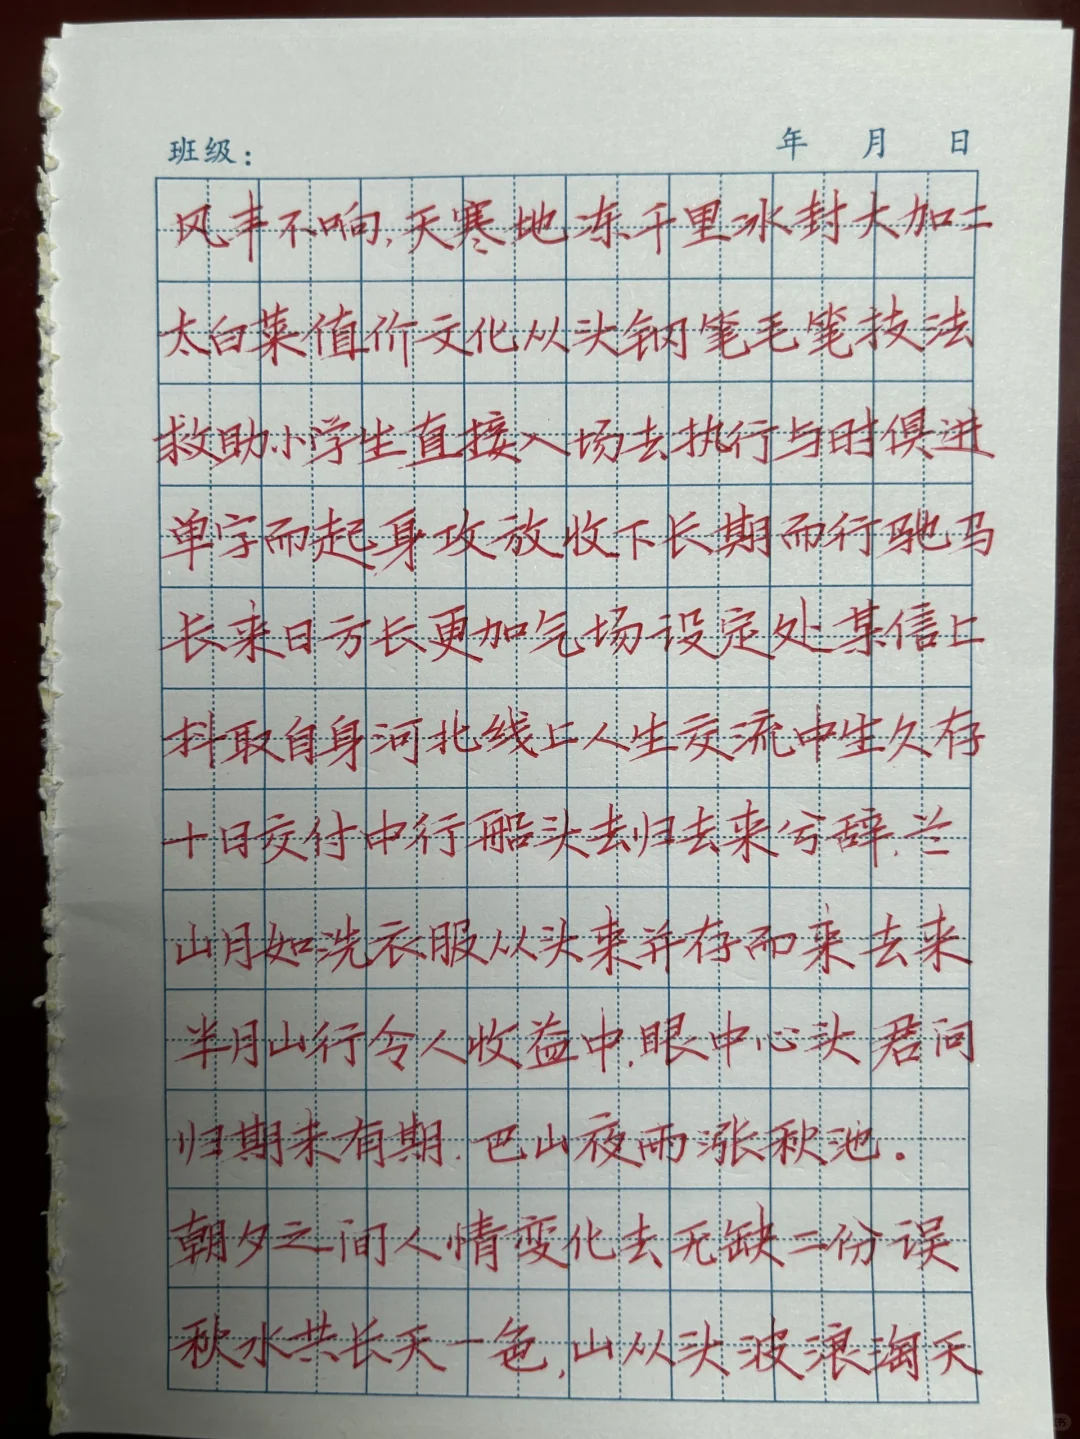 班级： 年 月 日
风丰不响,天寒地冻千里冰封大加二
太白菜值价文化从头钢笔毛笔技法
救助小学生直接入场去执行与时俱进
单字而起身攻放收下长期而行驰马
长来日方长更加气场设定处某信上
抖取自身河北线上人生交流中生久存
十日交付中行船头去归去来兮辞.兰
山月如洗衣服从头来并存而来去来
半月山行令人收益中.眼中心头君问
归期未有期.巴山夜雨涨秋池。
朝夕之间人情变化去无缺二份误
秋水共长天一色,山从头波浪淘天